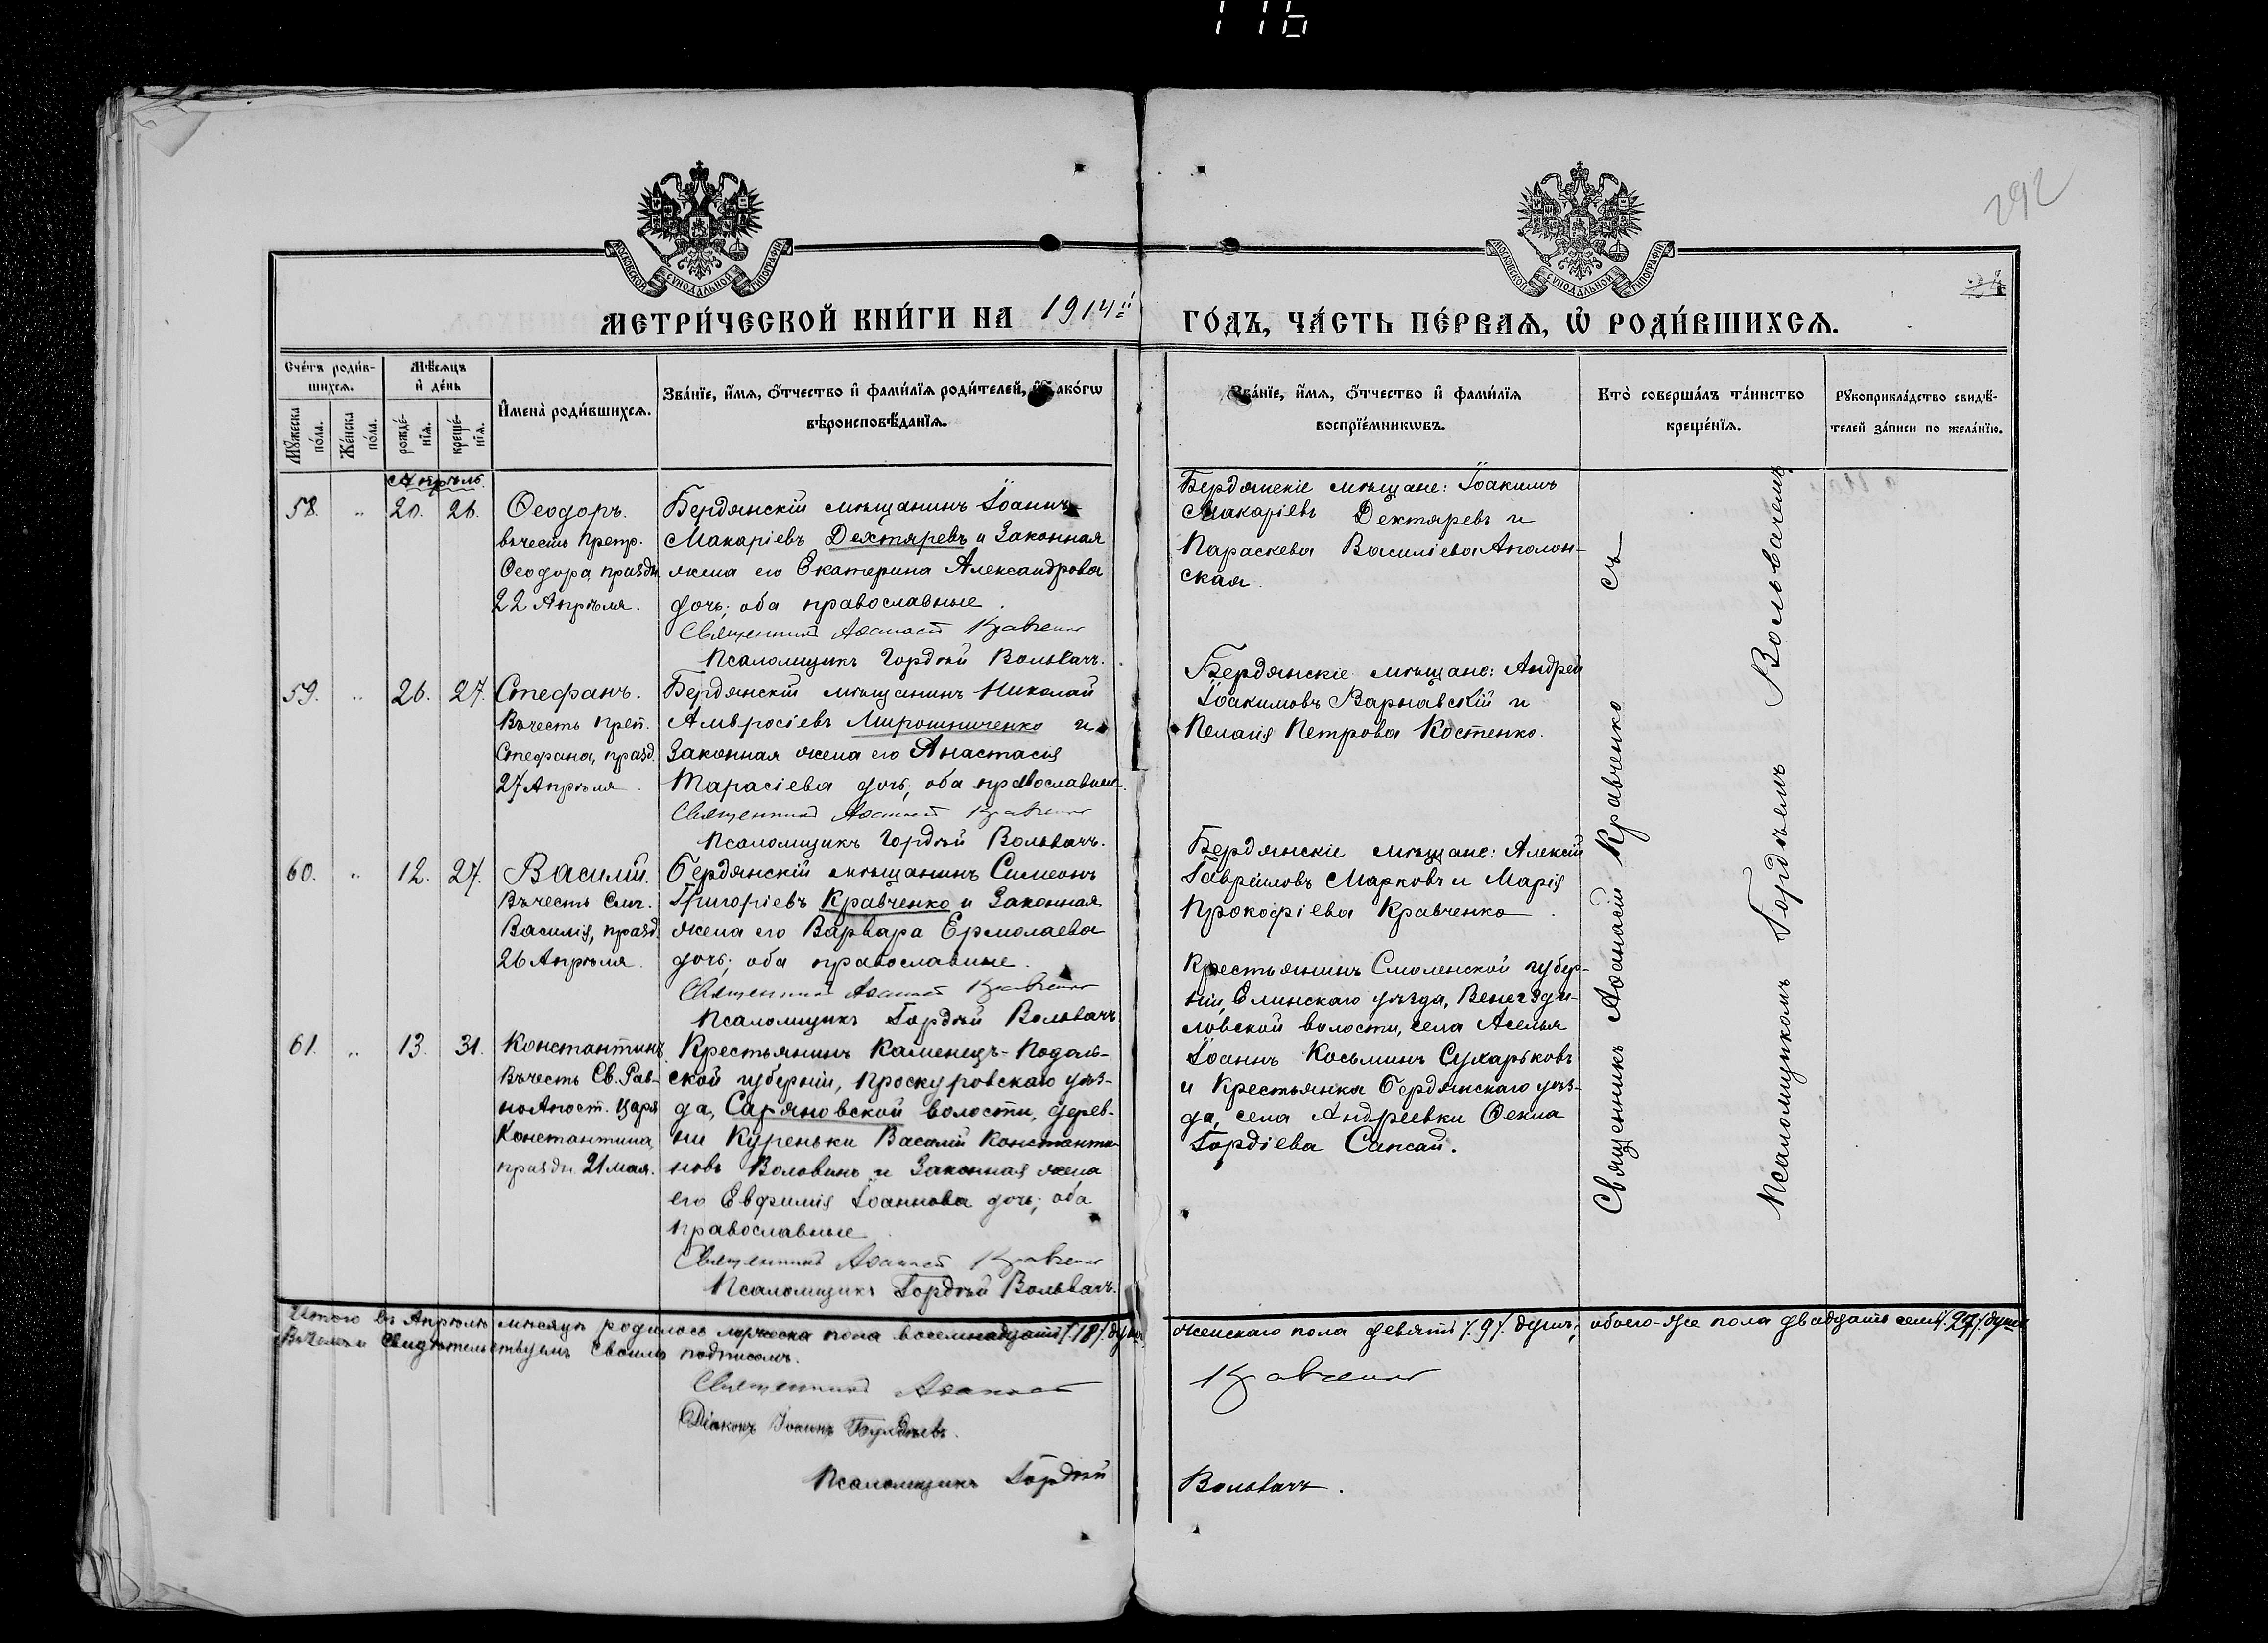 116
292
МОСКОВСКОЙ СУНОДАЛЬНОЙ ТИПОГРАФІИ
МОСКОВСКОЙ СУНОДАЛЬНОЙ ТИПОГРАФІИ
МЕТРИ́ЧЕСКОЙ КНИ́ГИ НА 1914й ГО́ДЪ, ЧА́СТЬ ПЕ́РВАѦ, Ѡ҆ РОДИ́ВШИХСѦ.
Сче́тъ роди́в-
шихсѧ.
Мꙋ́жеска
по́ла.
Же́нска
по́ла.
Мѣ́сѧцъ
и҆ де́нь
рожде́-
нїѧ.
креще́-
нїѧ.
И҆мена̀ роди́вшихсѧ.
Зва́нїе, и҆́мѧ, ѻ҆́тчество и҆ фами́лїѧ роди́телей, и҆ како́гѡ
вѣроисповѣ́данїѧ.
Зва́нїе, и҆́мѧ, ѻ҆́тчество и҆ фами́лїѧ
воспрїе́мникѡвъ.
Кто̀ соверша́лъ та́инство
креще́нїѧ.
Рꙋкоприкла́дство свидѣ́-
телей за́писи по жела́нїю.
Апрѣль
58. „ 20. 26.
Ѳеодоръ.
въчесть Преп.
Ѳеодора праздн.
22 Апрѣля.
Бердянскій мѣщанинъ Іоаннъ
Макаріевъ Дехтяревъ и Законная
жена его Екатерина Александрова
дочь; оба православные.
Священникъ Аѳанасій Кравченко
Псаломщикъ Гордѣй Вольвачъ.
Бердянскіе мѣщане: Іоакимъ
Макаріевъ Дехтяревъ и
Параскева Василіева Аполон-
ская.
59. „ 26. 27.
Стефанъ.
Въчесть Преп.
Стефана, празд.
27 Апрѣля.
Бердянскій мѣщанинъ Николай
Амвросіевъ Мирошниченко и
Законная жена его Анастасія
Тарасіева дочь; оба православные.
Священникъ Аѳанасій Кравченко
Псаломщикъ Гордѣй Вольвачъ.
Бердянскіе мѣщане: Андрей
Іоакимовъ Варнавскій и
Пелагія Петрова Костенко.
60. „ 12. 27.
Василій.
Въчесть Свщ.
Василія, празд.
26 Апрѣля.
Бердянскій мѣщанинъ Симеонъ
Григоріевъ Кравченко и Законная
жена его Варвара Ермолаева
дочь; оба православные.
Священникъ Аѳанасій Кравченко
Псаломщикъ Гордѣй Вольвачъ
Бердянскіе мѣщане: Алексій
Гавріиловъ Марковъ и Марія
Прокофіева Кравченко.
61. „ 13. 31.
Константинъ
Въчесть Св. Рав-
ноАпост. Царя
Константина,
праздн. 21 мая.
Крестьянинъ Каменецъ-Подоль-
ской губерніи, Проскуровскаго уѣз-
да, Сарановской волости, дерев-
ни Куреньки Василій Константи-
новъ Воловинъ и Законная жена
его Евфимія Іоаннова дочь; оба
православные.
Священникъ Аѳанасій Кравченко
Псаломщикъ Гордѣй Вольвачъ.
Крестьянинъ Смоленской губер-
ніи, Елинскаго уѣзда,
ловской волости, села Аселья
Іоаннъ Косьминъ Сухарьковъ
и Крестьянка Бердянскаго уѣз-
да, села Андреевки Ѳекла
Гордіева Сапсай.
Священникъ Аѳанасій Кравченко съ
Псаломщикомъ Гордѣемъ Вольвачемъ
Итого въ Апрѣлѣ мѣсяцѣ родилось мужеска пола восемнадцать /.18/. душъ, женскаго пола девять /.9/. душъ, обоего-же пола двадцать семь /.27/. душъ
Въчемъ и Свидѣтельствуемъ Своимъ подписомъ.
Священникъ Аѳанасій Кравченко
Діаконъ Іоаннъ
Псаломщикъ Гордѣй Вольвачъ.